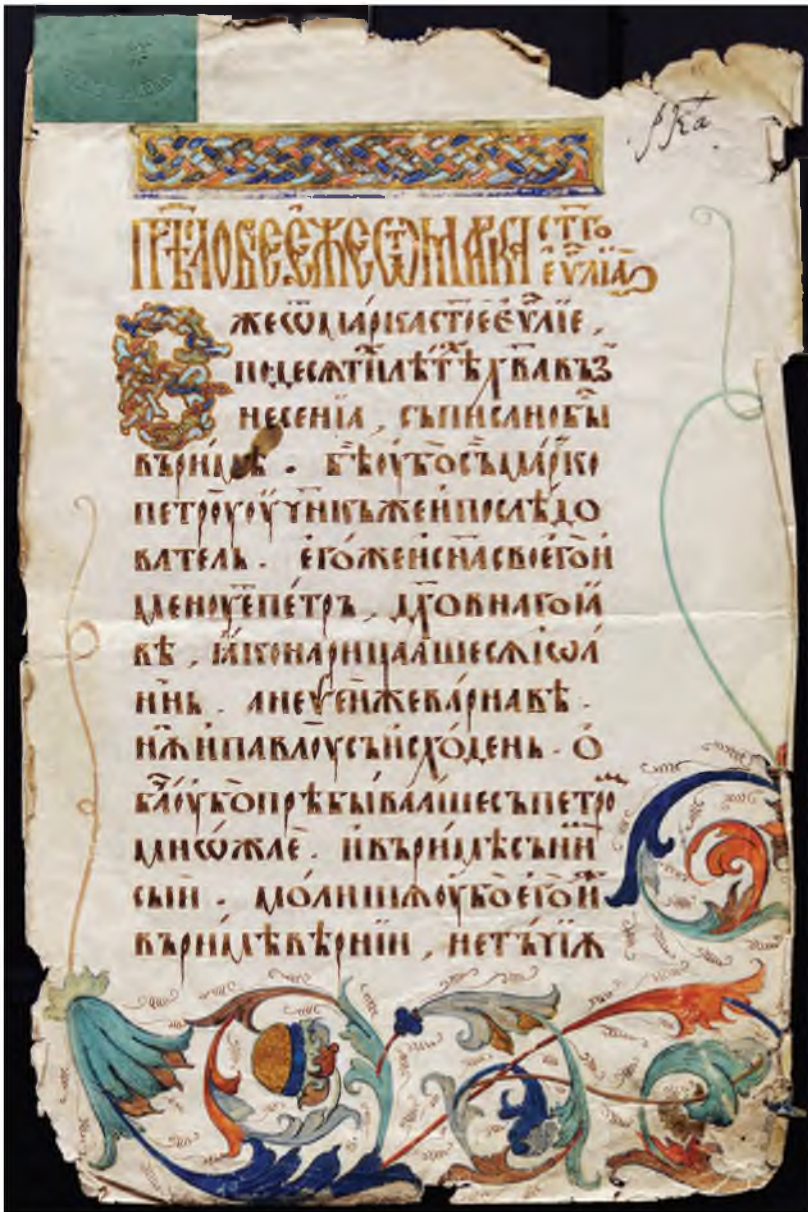 рк҃а
прѣⷣсловїе еже ѿ марка ст҃го
еѵⷢ҇лїа
Еже ѿ марка ст҃ое еѵⷢ҇лїе,
по десѧтиⷯ лѣтѣⷯ хв҃а въз
несенїа, съписано бы
въ римѣ. бѣ оубо съ марко
петроⷡ оучн҃къ же и послѣдо
ватель. егоже и сн҃а своего и
меноуеⷮ петръ, дх҃овнаго ꙗ
вѣ, ꙗко нарицаашесѧ і ѡа
ннь. анеѱей же варнавѣ.
нѫ и павлоу съисходень. о
бач҃е оубо прѣбываашесъ петро
мь
мнѡжае. и въ римѣ съ ниⷨ
сый. молишѫ оубо его иⷤ
въ римѣ вѣрнїи, не тъчїѫ